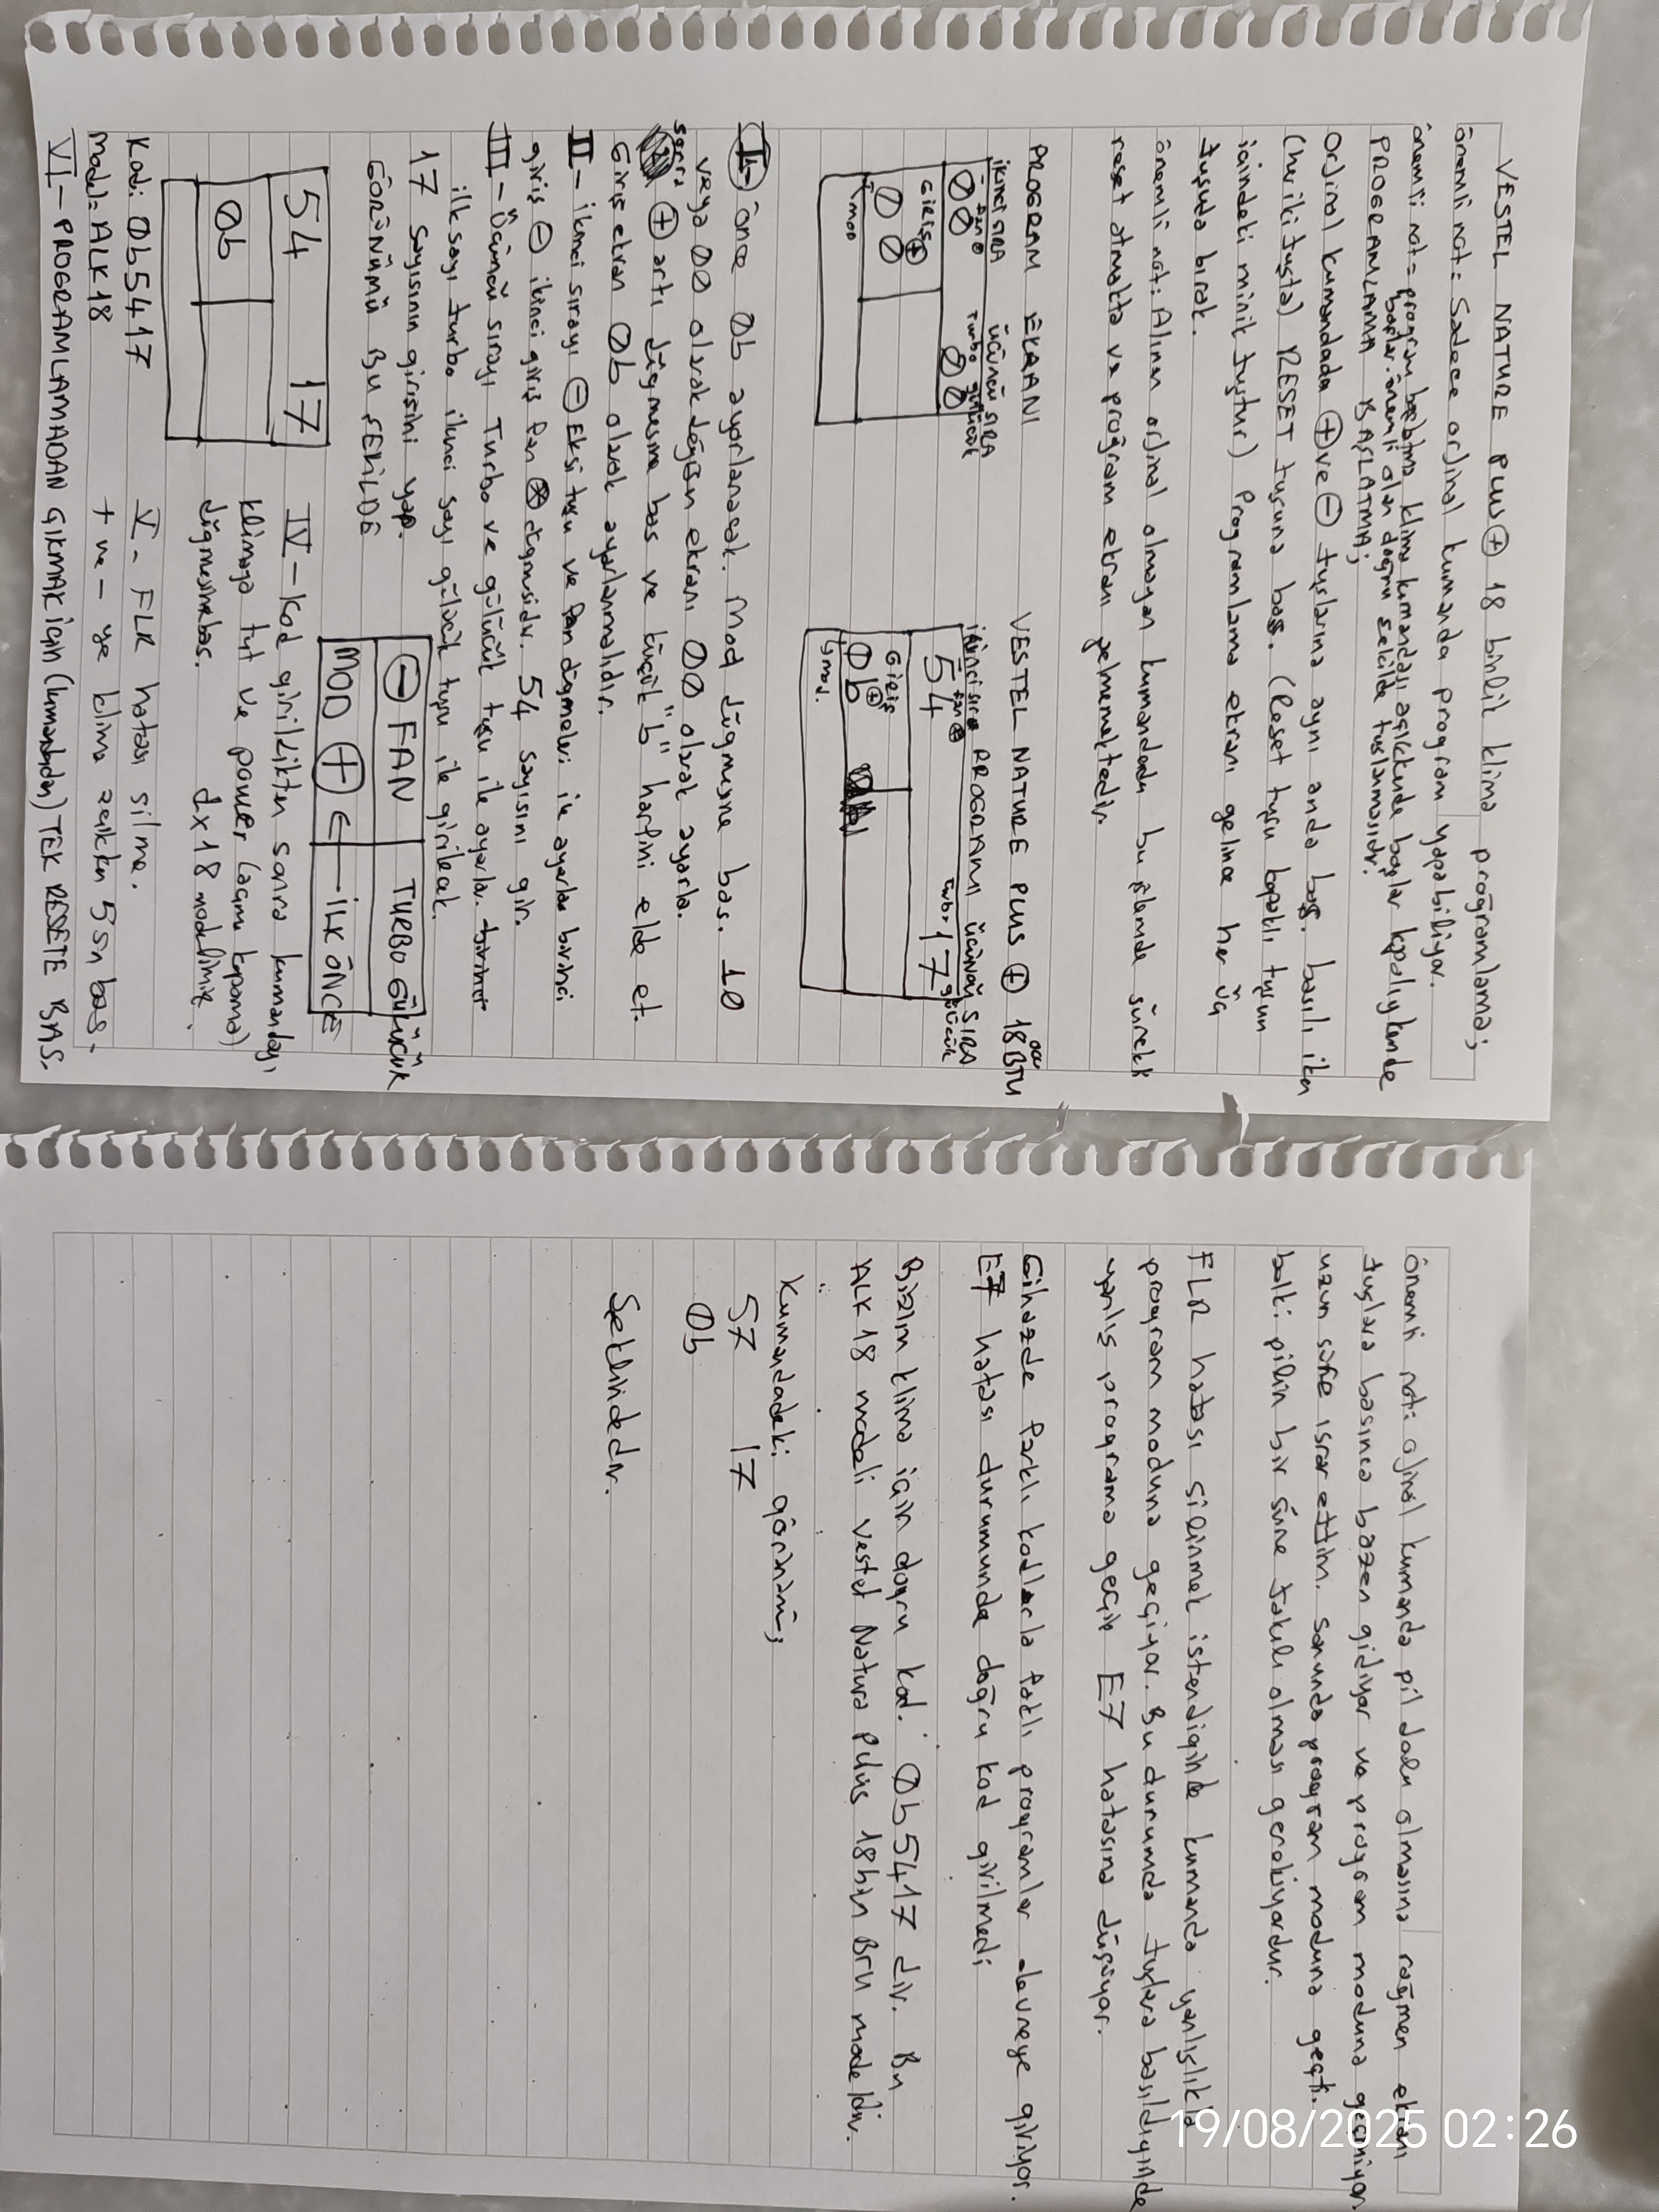 VESTEL NATURE PLUS ⊕ 18 binlik klima programlama;
önemli not: Sadece orjinal kumanda program yapabiliyor.
önemli not = program başlatma klima kumandası açıkkende başlar kapalıykende
başlar. önemli olan doğru şekilde tuşlanmasıdır.
PROGRAMLAMA BAŞLATMA;
Orjinal kumandada ⊕ ve ⊖ tuşlarına aynı anda bas. basılı iken
(her iki tuşta) RESET tuşuna bas. (Reset tuşu kapaklı tuşun
içindeki minik tuştur) Programlama ekranı gelince her üç
tuşuda bırak.
önemli not: Alınan orjinal olmayan kumandada bu işlemde sürekli
reset atmakta ve program ekranı gelmemektedir.
PROGRAM EKRANI
ikinci SIRA
fan ⊖
00
üçüncü SIRA
Turbo gülücük
00
GİRİŞ ⊕
00
mod
VESTEL NATURE PLUS ⊕ 18000 BTU
PROGRAMI
ikinci sıra
fan ⊕
54
üçüncü SIRA
turbo 17 gülücük
GİRİŞ ⊕
0b
mod.
I- önce 0b ayarlanacak. Mod düğmesine bas. 10
veya 00 olarak değişen ekranı 00 olarak ayarla.
sonra ⊕ artı düğmesine bas ve küçük "b" harfini elde et.
Giriş ekran 0b olarak ayarlanmalıdır.
II- ikinci sırayı ⊖ Eksi tuşu ve fan düğmeleri ile ayarla birinci
giriş ⊖ ikinci giriş fan düğmesidir. 54 sayısını gir.
III- Üçüncü sırayı Turbo ve gülücük tuşu ile ayarla. birinci
ilk sayı turbo ikinci sayı gülücük tuşu ile girilecek.
17 sayısının girişini yap.
GÖRÜNÜMÜ BU ŞEKİLDE
54 17
0b
⊖ FAN TURBO GÜLÜCÜK
MOD ⊕ ← İLK ÖNCE
IV- Kod girildikten sonra kumandayı
klimaya tut ve power (açma kapama)
düğmesine bas.
dx18 modelimiz.
Kodi: 0b5417
Model= ALK18
V- FLR hatası silme.
+ ve - ye klima açıkken 5 sn bas.
VI- PROGRAMLAMADAN ÇIKMAK için (kumandadan) TEK RESETE BAS.
önemli not: orjinal kumanda pil dolu olmasına rağmen ekranı
tuşlara basınca bazen gidiyor ve program moduna geçmiyor
uzun süre ısrar ettim. Sonunda program moduna geçti.
belki pilin bir süre takılı olması gerekiyordur.
FLR hatası silinmek istendiğinde kumanda yanlışlıkla
program moduna geçiyor. Bu durumda tuşlara basıldığında
yanlış programa geçip E7 hatasına düşüyor.
Cihazda farklı kodlarla farklı programlar devreye giriyor.
E7 hatası durumunda doğru kod girilmedi
Bizim klima için doğru kod: 0b5417 dir. Bu
ALK18 modeli vestel Natura Plus 18bin BTU modeldir.
Kumandadaki görünüm;
57 17
0b
Şeklindedir.
19/08/2025 02:26